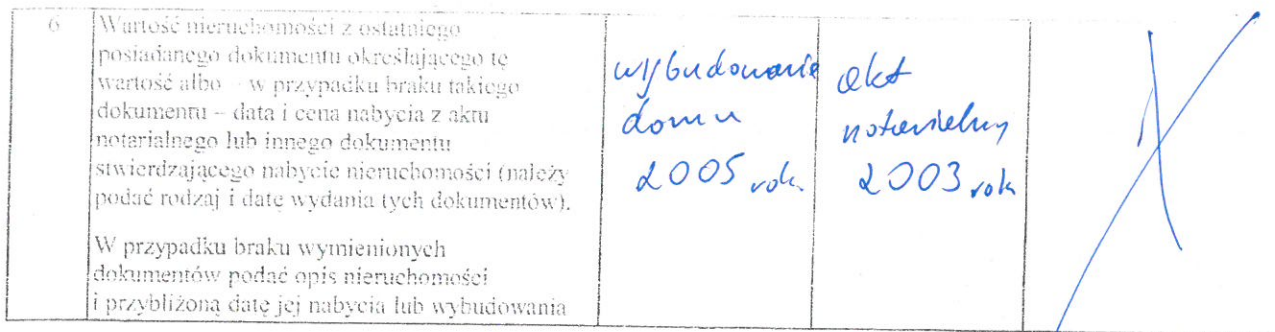 6
Wartość nieruchomości z ostatniego
posiadanego dokumentu określającego tę
wartość albo – w przypadku braku takiego
dokumentu – data i cena nabycia z aktu
notarialnego lub innego dokumentu
stwierdzającego nabycie nieruchomości (należy
podać rodzaj i datę wydania tych dokumentów).
W przypadku braku wymienionych
dokumentów podać opis nieruchomości
i przybliżoną datę jej nabycia lub wybudowania
wybudowanie
domu
2005 rok
akt
notarialny
2003 rok